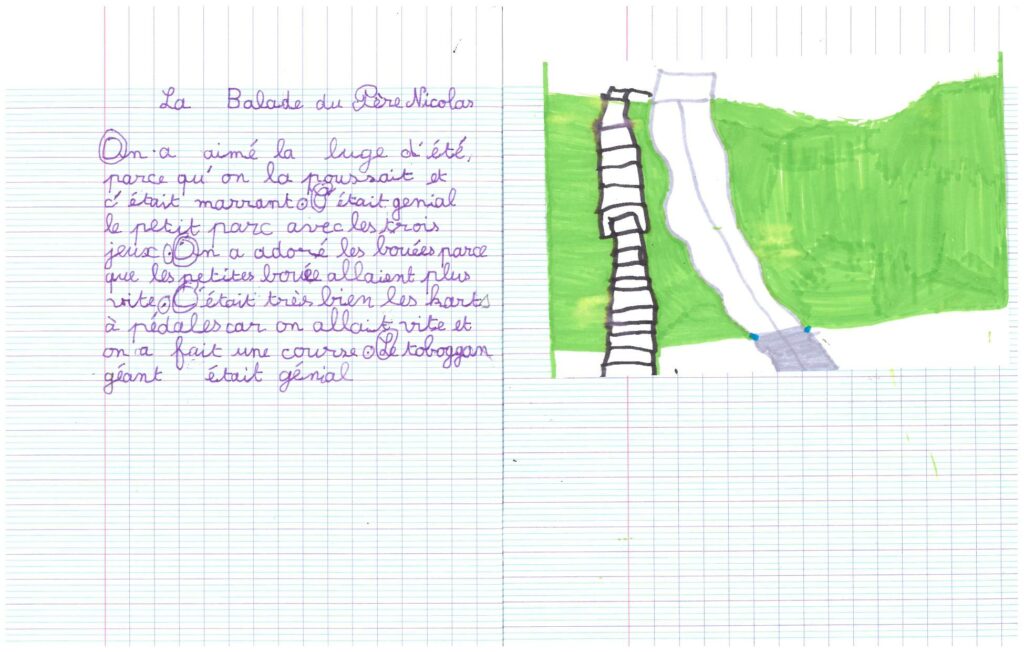 La Balade du Père Nicolas
On a aimé la luge d'été,
parce qu'on la poussait et
c'était marrant. C'était genial
le petit parc avec les trois
jeux. On a adoré les bouées parce
que les petites bouée allaient plus
vite. C'était très bien les karts
à pédales car on allait vite et
on a fait une course. Le toboggan
géant était génial